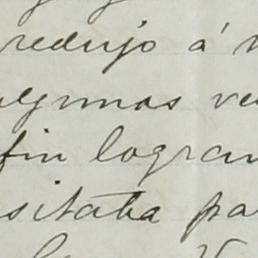 redujo á
algunas ve
fin logran
sitaba pa